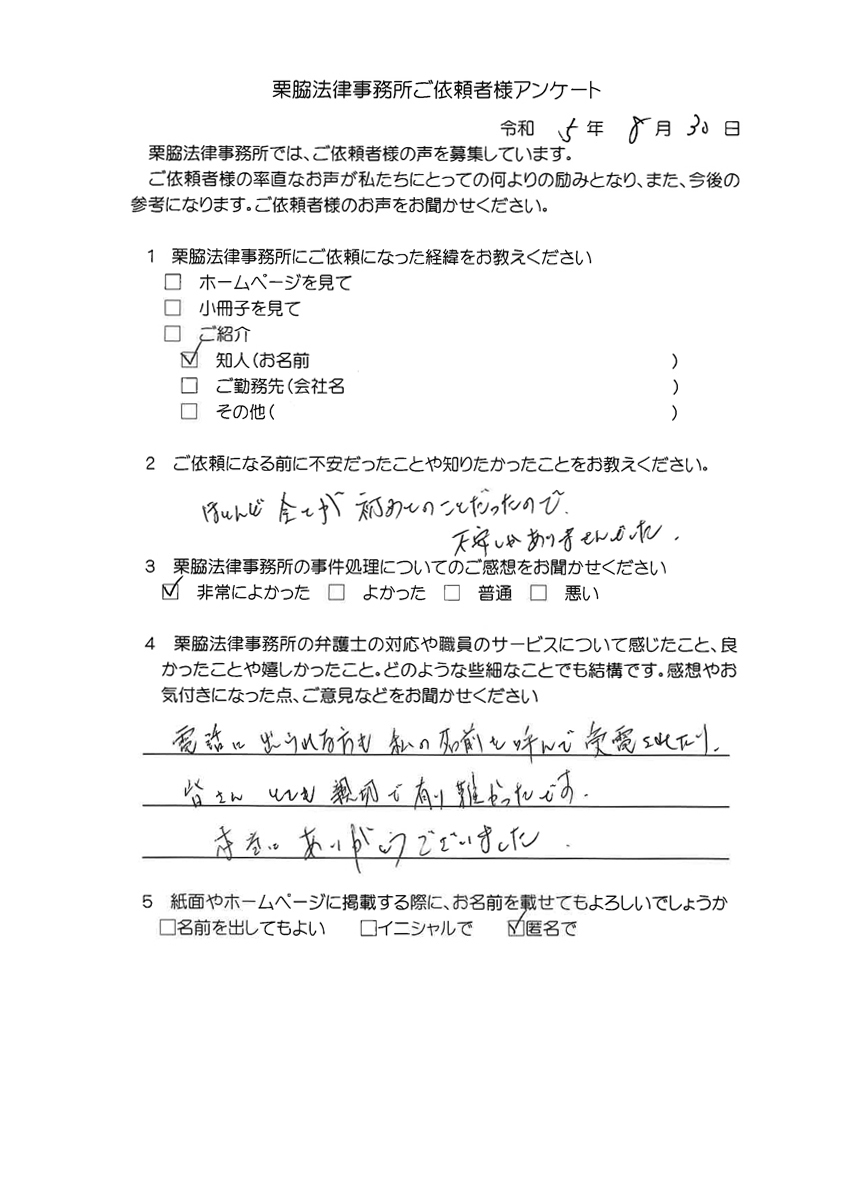 栗脇法律事務所ご依頼者様アンケート
令和 5 年 8 月 30 日
栗脇法律事務所では、ご依頼者様の声を募集しています。
ご依頼者様の率直なお声が私たちにとっての何よりの励みとなり、また、今後の
参考になります。ご依頼者様のお声をお聞かせください。
1 栗脇法律事務所にご依頼になった経緯をお教えください
□ ホームページを見て
□ 小冊子を見て
□ ご紹介
☑ 知人(お名前 )
□ ご勤務先(会社名 )
□ その他( )
2 ご依頼になる前に不安だったことや知りたかったことをお教えください。
ほとんど全てが初めてのことだったので、
不安しかありませんでした。
3 栗脇法律事務所の事件処理についてのご感想をお聞かせください
☑ 非常によかった □ よかった □ 普通 □ 悪い
4 栗脇法律事務所の弁護士の対応や職員のサービスについて感じたこと、良
かったことや嬉しかったこと。どのような些細なことでも結構です。感想やお
気付きになった点、ご意見などをお聞かせください
電話に出られる方も私の名前を呼んで受電されたり、
皆さんとても親切で有り難かったです。
本当にありがとうございました。
5 紙面やホームページに掲載する際に、お名前を載せてもよろしいでしょうか
□名前を出してもよい □イニシャルで ☑匿名で